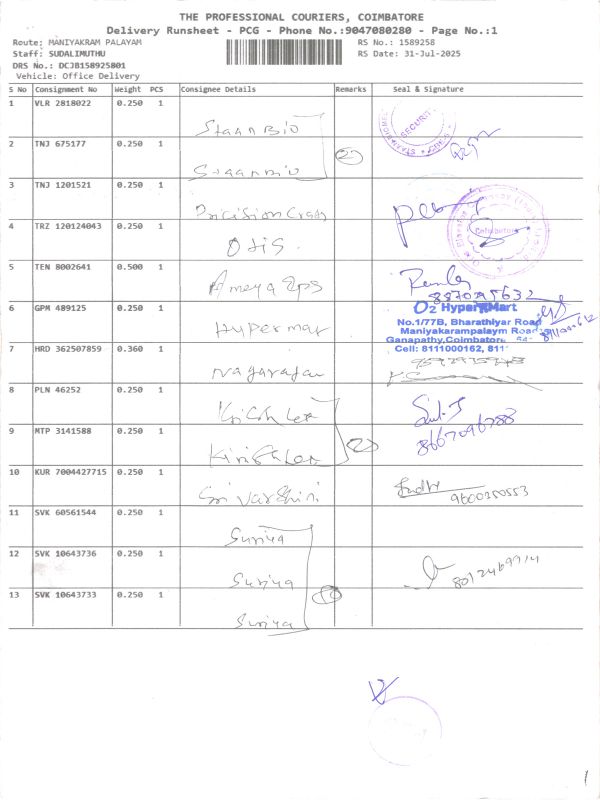 THE PROFESSIONAL COURIERS, COIMBATORE
Delivery Runsheet - PCG - Phone No.:9047080280 - Page No.:1
Route: MANIYAKRAM PALAYAM
RS No.: 1589258
Staff: SUDALIMUTHU
RS Date: 31-Jul-2025
DRS No.: DCJB158925801
Vehicle: Office Delivery
S No Consignment No Weight PCS Consignee Details Remarks Seal & Signature
1 VLR 2818022 0.250 1 Staan Bio
SECURITY
2 TNJ 675177 0.250 1 Staan Bio 2
3 TNJ 1201521 0.250 1
4 TRZ 120124043 0.250 1 Otis.
5 TEN 8002641 0.500 1 Ameya
6 GPM 489125 0.250 1 Hyper mar
O2 Hyper Mart
No.1/77B, Bharathiyar Road
Maniyakarampalaym Road
Ganapathy, Coimbatore
Cell: 8111000162, 811
7 HRD 362507859 0.360 1 nagarajan
8 PLN 46252 0.250 1
8667096788
9 MTP 3141588 0.250 1 2
10 KUR 7004427715 0.250 1 Sri Varshini
9600350553
11 SVK 60561544 0.250 1 Suriya
12 SVK 10643736 0.250 1 Suriya
13 SVK 10643733 0.250 1 Suriya
1